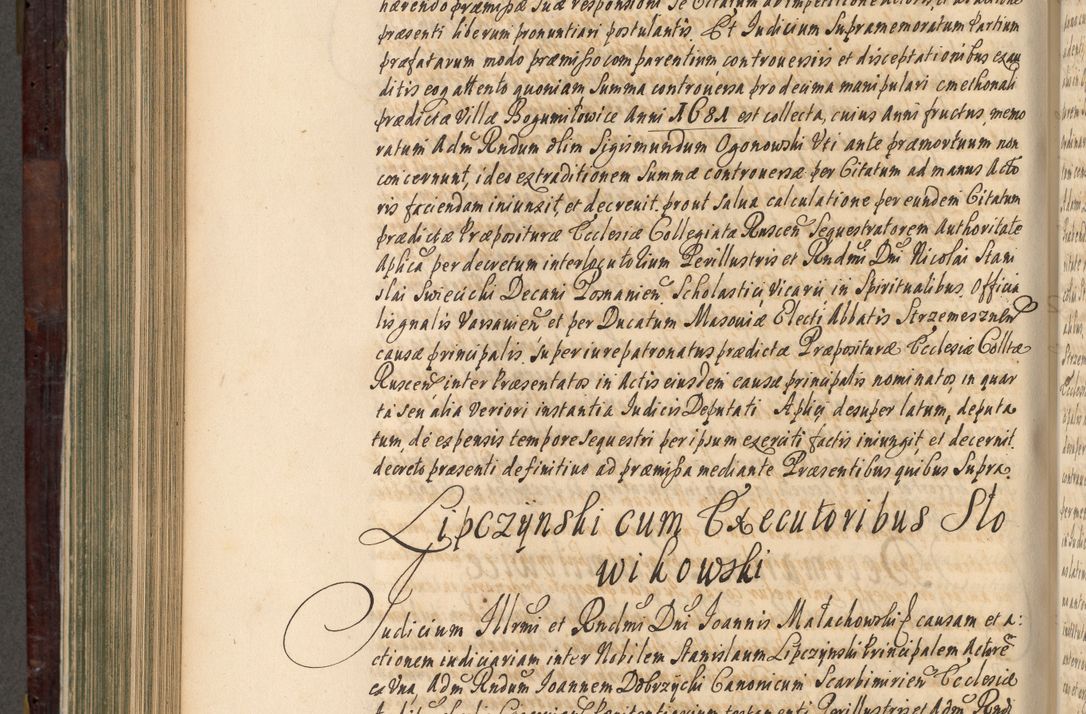 hærendo præmissæ suæ responsioni se Citatum ab impetitione Actoris, et ab actione
præsenti liberum pronuntiari postulantis. Et Iudicium Supramemoratum Partium
præfatarum modo præmisso comparentium controversiis et disceptationibus exau
ditis eoq attento quoniam Summa controversa pro decima manipulari cmethonali
prædictæ Villæ Bogumiłowice Anni 1681 est collecta, cuius Anni fructus, memo
ratum Adm Rndum olim Sigismundum Ogonowski Uti ante præmortuum non
concernunt, ideo extraditionem Summæ controversæ per Citatum ad manus Acto
ris faciendam iniunxit, et decrevit. prout salva calculatione per eundem Citatum
prædictæ Præposituræ Ecclesiæ Collegiatæ Ruscen Sequestratorem Authoritate
Aplica per decretum interlocutolium Perillustris et Rndmi Dni Nicolai Stani
slai Swiecicki Decani Posnanien Scholastici Vicarii in Spiritualibus. Officia
lis gnalis Varsavien et per Ducatum Masoviæ Electi Abbatis Strzemesznen
causæ principalis. Super iure patronatus prædictæ Præposituræ Ecclesiæ Colltæ
Ruscen inter Præsentatos in Actis eiusdem causæ principalis nominatos, in quar
ta seu alia veriori instantia Iudicis Deputati Aplici desuper latum, deputa
tum, de expensis tempore sequestri per ipsum exerciti factis iniungit, et decernit.
decreto præsenti definitivo ad præmissa mediante Præsentibus quibus Supra.
Lipczynski cum Executoribus Sło
wikowski
Iudicium Illrmi et Rndmi Dni Ioannis Małachowski causam et a:
ctionem iudiciariam inter Nobilem Stanislaum Lipczynski Principalem Actorē
ex Una, Adm Rndum Ioannem Dobrzycki Canonicum Scarbimirien Ecclesiæ